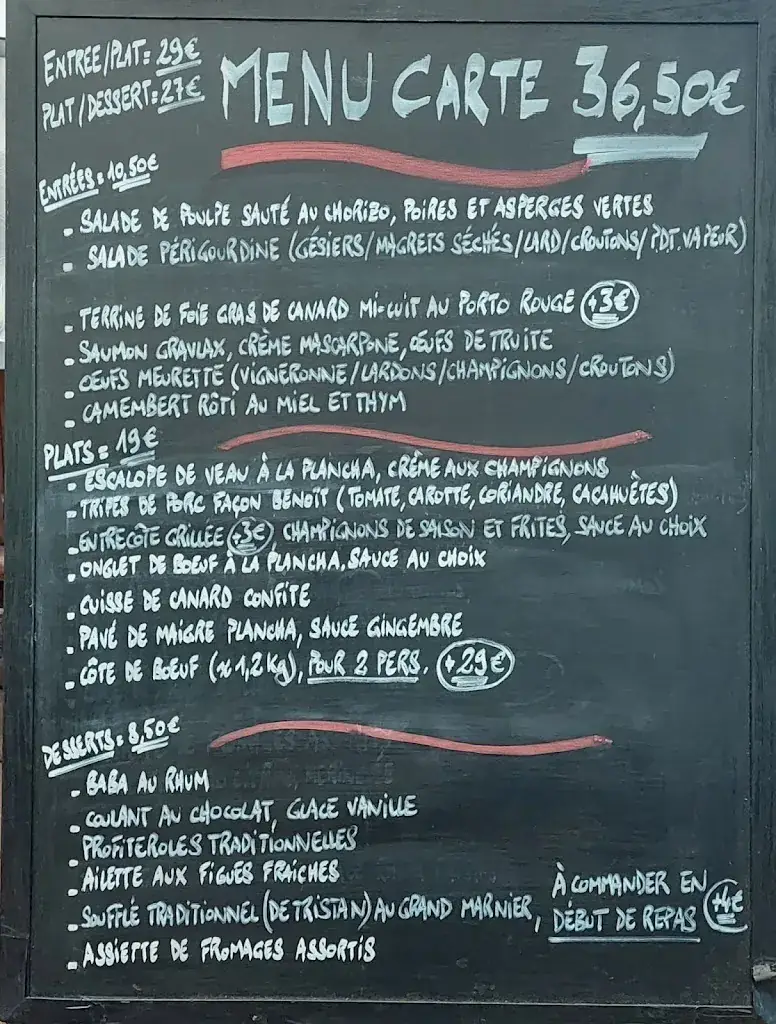 ENTREE/PLAT= 29€
PLAT/DESSERT=27€
MENU CARTE 36,50€
ENTRÉES = 10,50€
- SALADE DE POULPE SAUTÉ AU CHORIZO, POIRES ET ASPERGES VERTES
- SALADE PÉRIGOURDINE (GÉSIERS/MAGRETS SÉCHÉS/LARD/CROUTONS/PDT.VAPEUR)
- TERRINE DE FOIE GRAS DE CANARD MI-CUIT AU PORTO ROUGE +3€
- SAUMON GRAVLAX, CRÈME MASCARPONE, ŒUFS DE TRUITE
- ŒUFS MEURETTE (VIGNERONNE/LARDONS/CHAMPIGNONS/CROUTONS)
- CAMEMBERT RÔTI AU MIEL ET THYM
PLATS = 19€
- ESCALOPE DE VEAU À LA PLANCHA, CRÈME AUX CHAMPIGNONS
- TRIPES DE PORC FAÇON BENOÎT (TOMATE, CAROTTE, CORIANDRE, CACAHUÊTES)
- ENTRECÔTE GRILLÉE +3€, CHAMPIGNONS DE SAISON ET FRITES, SAUCE AU CHOIX
- ONGLET DE BOEUF À LA PLANCHA, SAUCE AU CHOIX
- CUISSE DE CANARD CONFITE
- PAVÉ DE MAIGRE PLANCHA, SAUCE GINGEMBRE
- CÔTE DE BOEUF (≈1,2Kg), POUR 2 PERS. +29€
DESSERTS = 8,50€
- BABA AU RHUM
- COULANT AU CHOCOLAT, GLACE VANILLE
- PROFITEROLES TRADITIONNELLES
- AILETTE AUX FIGUES FRAICHES
- SOUFFLÉ TRADITIONNEL (DE TRISTAN) AU GRAND MARNIER, À COMMANDER EN DÉBUT DE REPAS +4€
- ASSIETTE DE FROMAGES ASSORTIS